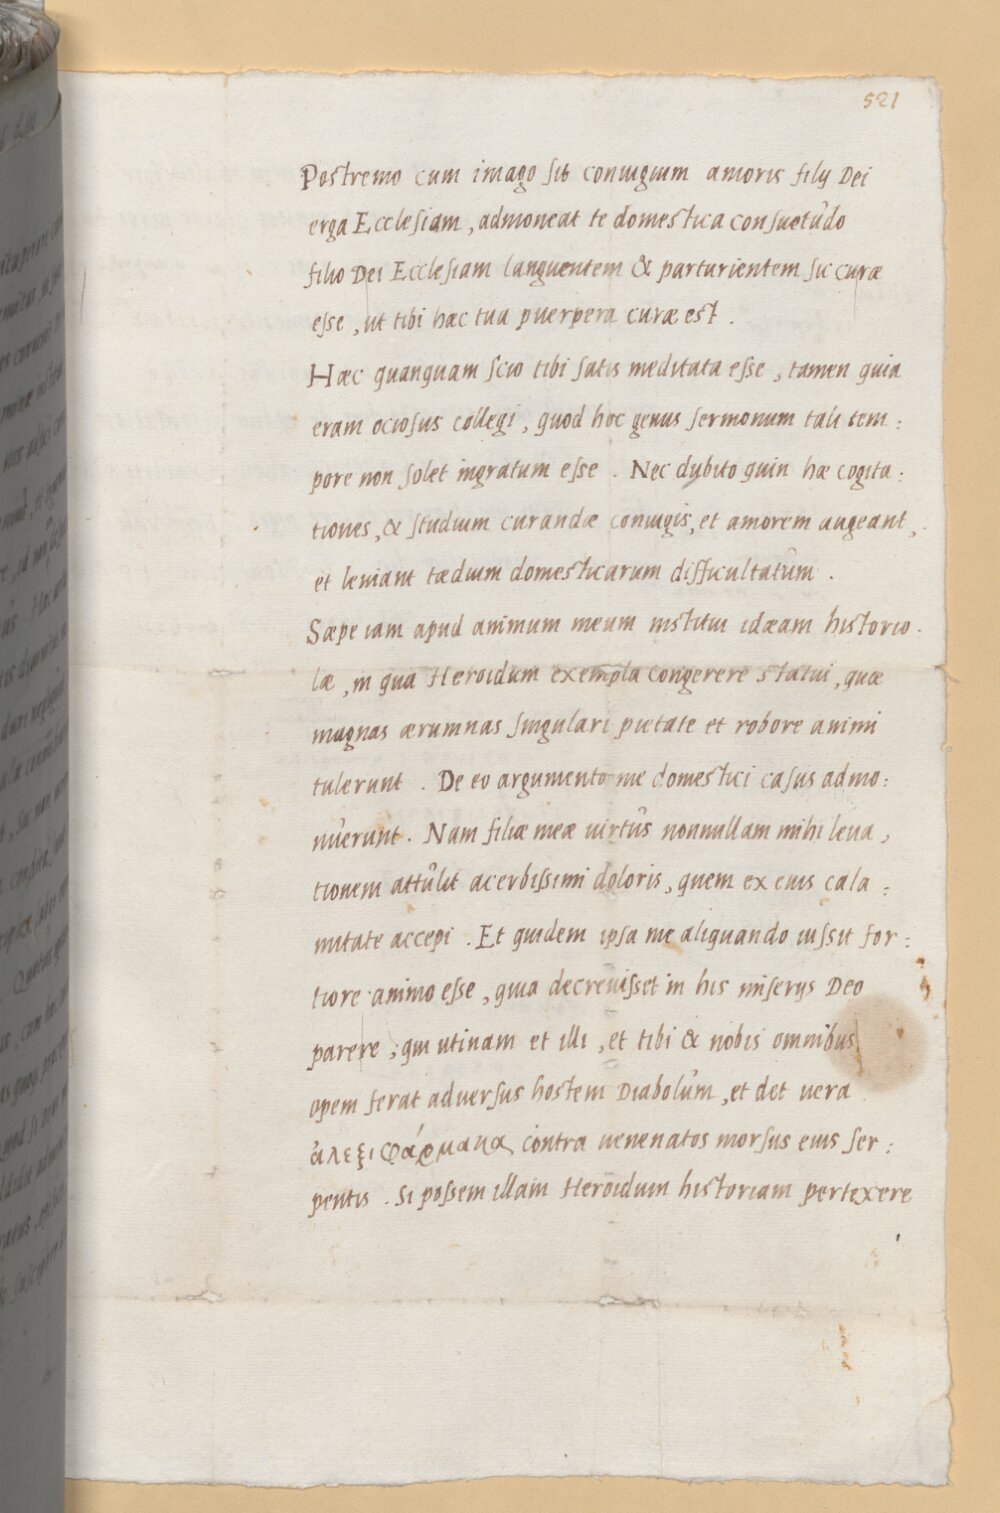 521
Postremo cum imago sit coniugium amoris filij Dei
erga Ecclesiam, admoneat te domestica consuetúdo
filio Dei Ecclesiam languentem & parturientem sic curæ
esse, ut tibi hæc tua puerpera curæ est.
Hæc quanquam scio tibi satis meditata esse, tamen quia
eram ociosus collegi, quod hoc genus sermonum tali tem:
pore non solet ingratum esse. Nec dubito quin hæ cogita:
tiones, & studium curandæ coniugis, et amorem augeant,
et leniant tædium domesticarum difficultatúm.
Sæpe iam apud animum meum institui idæam historio-
læ, in qua Heroidum exempla congerere statui, quæ
magnas ærumnas singulari pietate et robore animi
tulerunt. De eo argumento me domestici casus admo:
núerunt. Nam filiæ meæ uirtús nonnullam mihi leua,
tionem attúlit acerbissimi doloris, quem ex eius cala:
mitate accepi. Et quidem ipsa me aliquando iussit for:
tiore animo esse, quia decreuisset in his miserijs Deo
parere; qui utinam et illi, et tibi & nobis omnibus
opem ferat aduersus hostem Diabolúm, et det uera
ἀλεξιφάρμακα contra uenenatos morsus eius ser:
pentis. Si possem illam Heroidum historiam pertexere